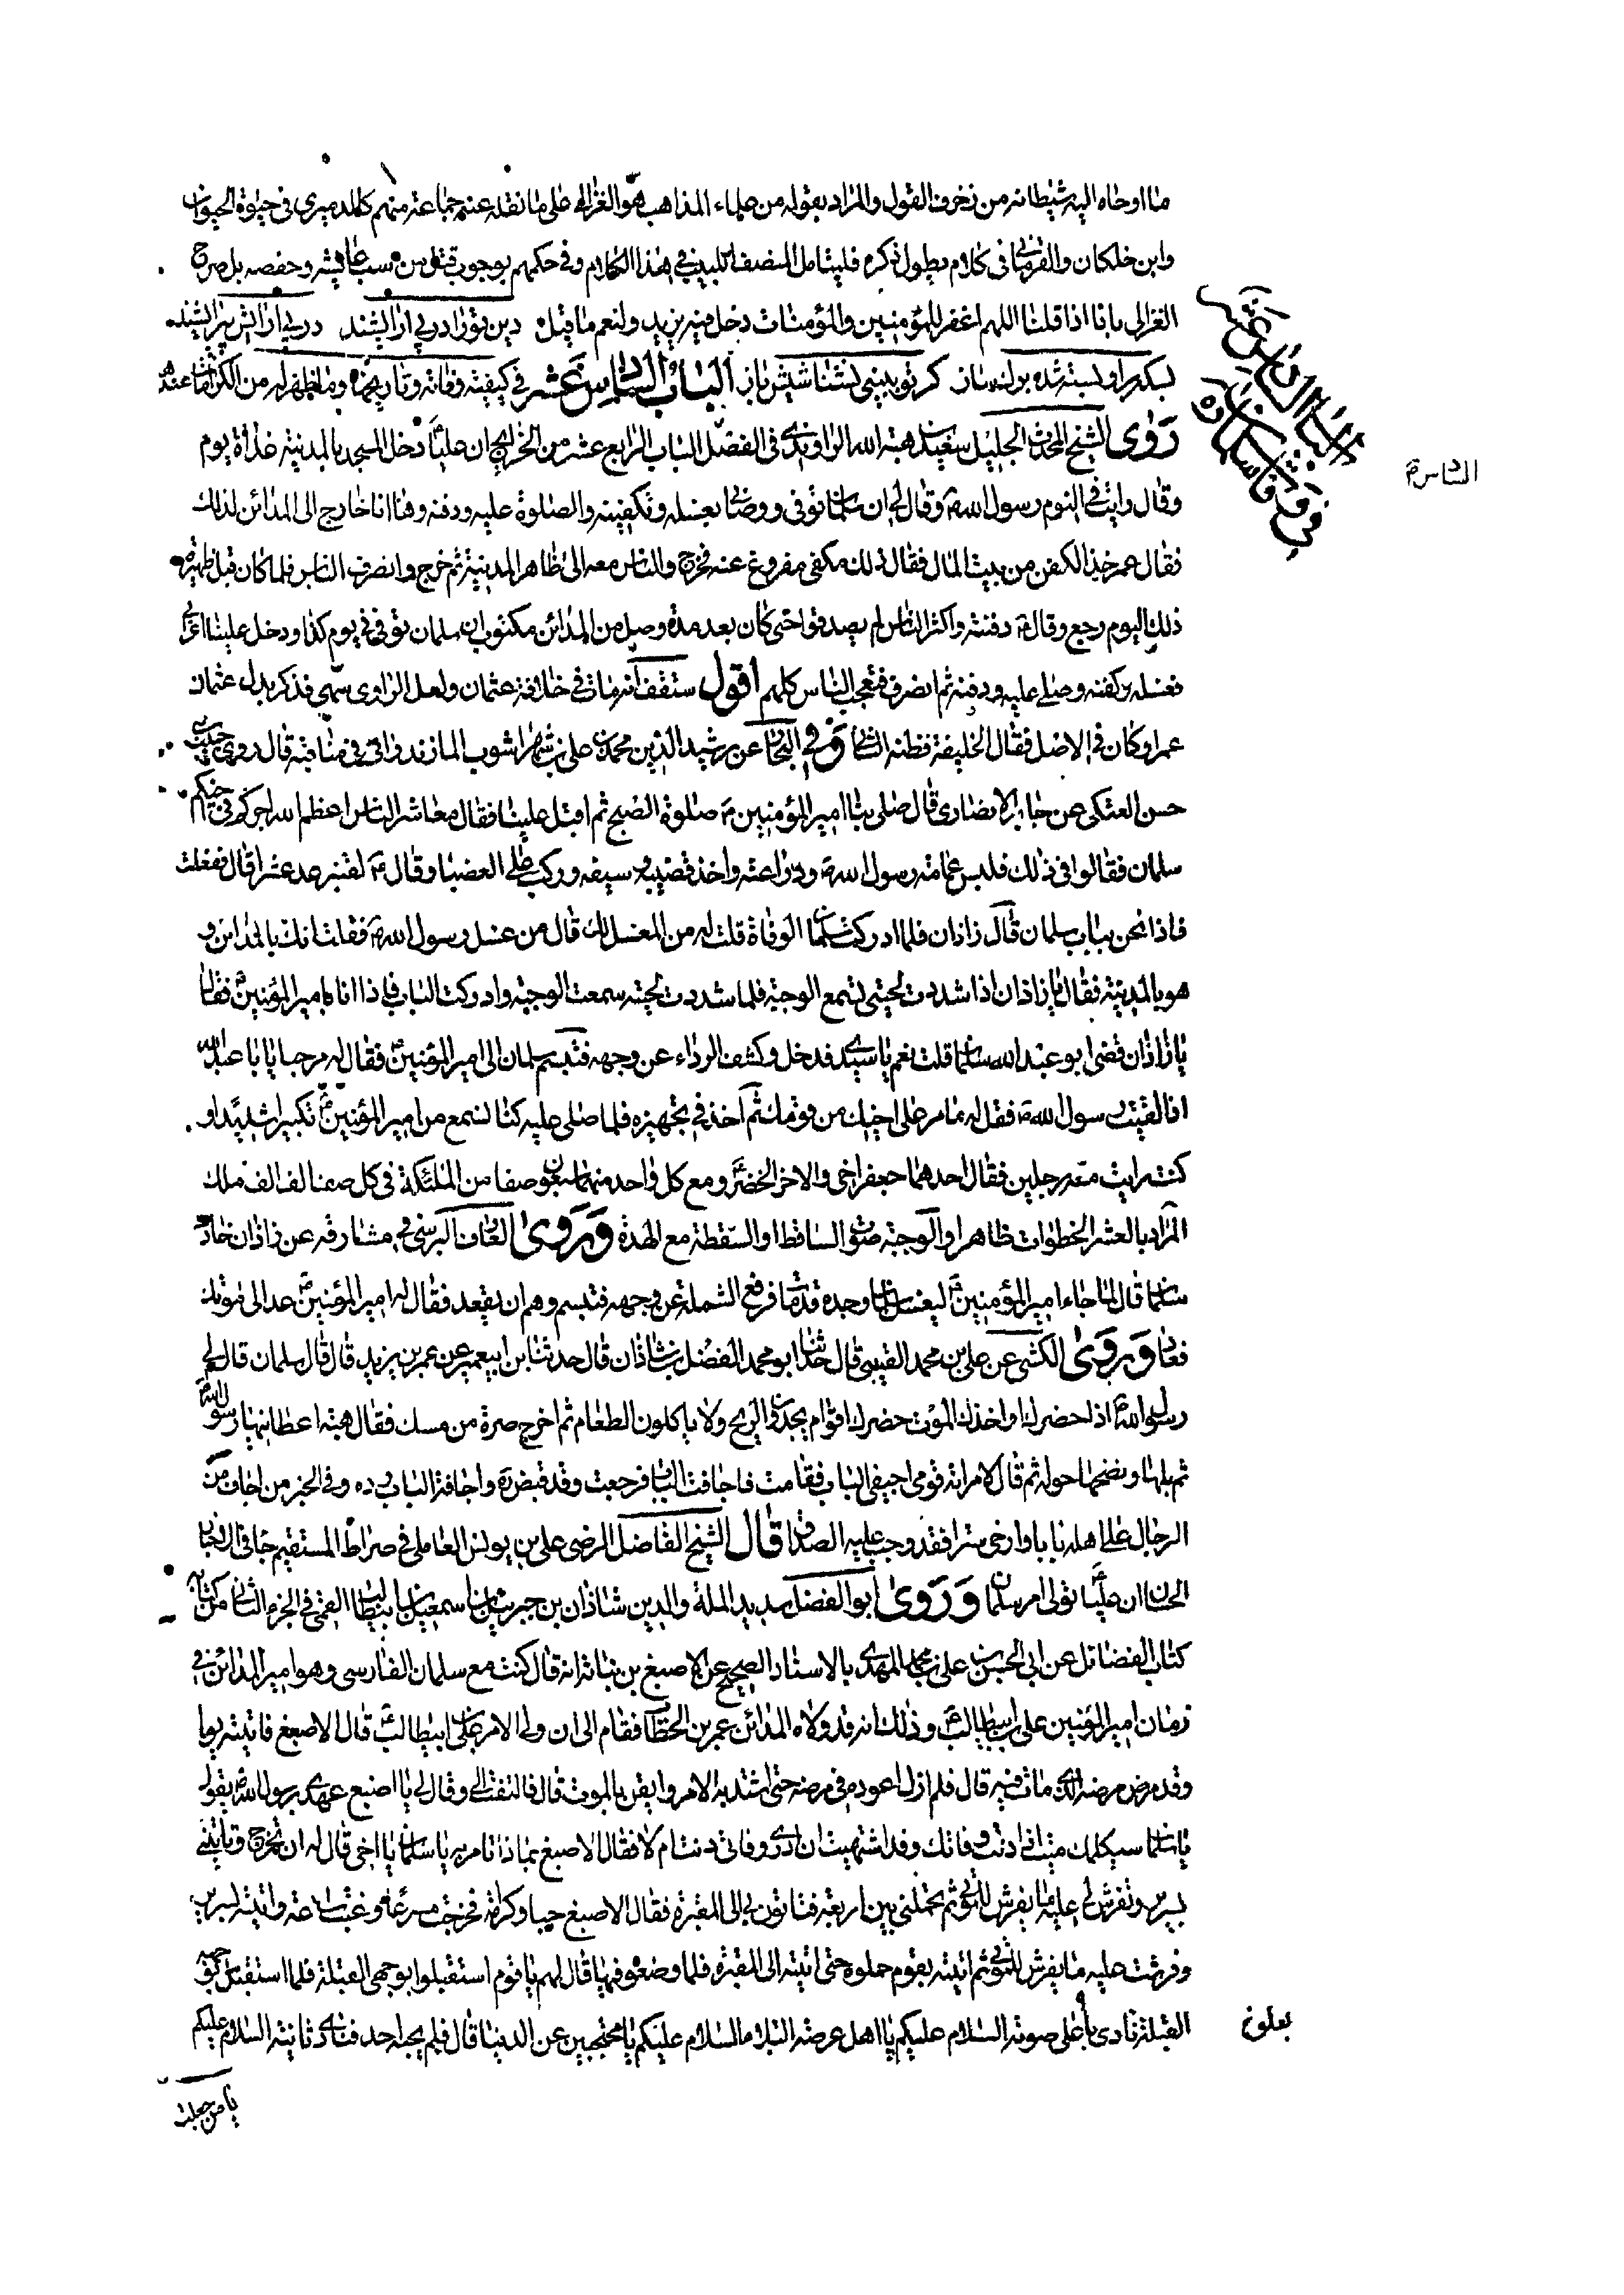 ما اوحاه اليه شيطانه من زخرف القول والمراد بقوله من علماء المذاهب هو الغزالي على ما نقله عنه جماعة منهم كالدميري في حيوة الحيوان
وابن خلكان والقرماني في كلام يطول ذكره فليتامل المنصف اللبيب في هذا الكلام وفي حكمهم بوجوب قتل من سب عايشه وحفصه بل صرح
الغزالي بانا اذا قلنا اللهم اغفر للمؤمنين والمؤمنات دخل فيه يزيد ولنعم ما قيل دين تورا در پی ارایشند در پی ارایش پیرایشند
بسكه بر او بسته شده برك وساز كر تو ببینی نشناسیش باز الباب السادس عشر في كيفية وفاته وتاريخه وما ظهر له من الكرامات عنده
روى الشيخ المحدث الجليل سعيد بن هبة الله الراوندي في الفصل الباب الرابع عشر من الخرايج ان عليا ع دخل المسجد بالمدينة غداة يوم
وقال رايت في النوم رسول الله ص وقال لي ان سلمان توفي ووصاني بغسله وتكفينه والصلوة عليه ودفنه وها انا خارج الى المدائن لذلك
فقال عمر خذ الكفن من بيت المال فقال ذلك مكفي مفروغ عنه فخرج والناس معه الى ظاهر المدينة ثم خرج وانصرف الناس فلما كان قبل ظهيرة
ذلك اليوم رجع وقال دفنته واكثر الناس لم يصدقوا حتى كان بعد مدة وصل من المدائن مكتوب ان سلمان توفي في يوم كذا ودخل علينا اعرابي
فغسله وكفنه وصلى عليه ودفنه ثم انصرف فتعجب الناس كلهم اقول ستقف انه مات في خلافة عثمان ولعل الراوي سهى فذكر بدل عثمان
عمر او كان في الاصل فقال الخليفة فظنه الثاني وفي البحار عن رشيد الدين محمد بن علي بن شهراشوب المازندراني في مناقبه قال روى حبيب بن
حسن العتكي عن جابر الانصاري قال صلى بنا امير المؤمنين ع صلوة الصبح ثم اقبل علينا فقال معاشر الناس اعظم الله اجركم في اخيكم
سلمان فقالوا في ذلك فلبس عمامة رسول الله ص ودراعته واخذ قضيبه وسيفه وركب على العضبا وقال ع لقنبر عد عشرا قال ففعلت
فاذا نحن بباب سلمان قال زاذان فلما ادركت سلمان الوفاة قلت له من المغسل لك قال من غسل رسول الله ص فقلت انك بالمدائن و
هو بالمدينة فقال يا زاذان اذا شددت لحيتي تسمع الوجبة فلما شددت لحيته سمعت الوجبة وادركت الباب فاذا انا بامير المؤمنين ع فقال
يا زاذان قضى ابو عبد الله سلمان قلت نعم يا سيدي فدخل وكشف الرداء عن وجهه فتبسم سلمان الى امير المؤمنين ع فقال له مرحبا يا با عبد الله
اذا لقيت رسول الله ص فقل له ما مر على اخيك من قومك ثم اخذ في تجهيزه فلما صلى عليه كنا نسمع من امير المؤمنين ع تكبيرا شديدا و
كنت رايت معه رجلين فقال احدهما جعفر اخي والاخر الخضر ع ومع كل واحد منهما سبعون صفا من الملئكة في كل صف الف الف ملك
المراد بالعشر الخطوات ظاهرا والوجبة صوت الساقط او السقطة مع الهدة وروى العارف البرسي في مشارقه عن زاذان خادم
سلمان قال لما جاء امير المؤمنين ع ليغسل سلمان وجده قد مات فرفع الشملة عن وجهه فتبسم وهم ان يقعد فقال له امير المؤمنين ع عد الى موتك
فعاد وروى الكشي عن علي بن محمد القتيبي قال حدثنا ابو محمد الفضل بن شاذان قال حدثنا ابن ابي عمير عن عمر بن يزيد قال قال سلمان قال لي
رسول الله ص اذا حضرك او اخذك الموت حضرك اقوام يجدون الريح ولا ياكلون الطعام ثم اخرج صرة من مسك فقال هبة اعطانيها رسول الله ص
ثم بلها ونضحها حوله ثم قال لامراته قومي اجيفي الباب فقامت فاجافت الباب فرجعت وقد قبض ره واجافة الباب رده وفي الخبر من اجاف من
الرجال على اهله بابا وارخى سترا فقد وجب عليه الصداق قال الشيخ الفاضل الرضي علي بن يونس العاملي في صراط المستقيم
الحسان ان عليا ع تولى امر سلمان وروى ابو الفضل سديد الملة والدين شاذان بن جبرئيل بن اسمعيل بن ابيطالب القمي في الجزء الثاني من كتاب
كتاب الفضائل عن ابي الحسن بن علي بن محمد المهدي بالاسناد الصحيح عن الاصبغ بن نباتة انه قال كنت مع سلمان الفارسي وهو امير المدائن في
زمان امير المؤمنين علي بن ابيطالب ع وذلك انه قد ولاه المدائن عمر بن الخطاب فقام الى ان ولي الامر علي بن ابيطالب ع قال الاصبغ فاتيته يوما
وقد مرض مرضه الذي مات فيه قال فلم ازل اعوده في مرضه حتى اشتد به الامر وايقن بالموت قال فالتفت الي وقال لي يا اصبغ عهدي برسول الله ص يقول
يا سلمان سيكلمك ميت اذا دنت وفاتك وقد اشتهيت ان ادري وفاتي دنت ام لا فقال الاصبغ بماذا تامر به يا سلمان يا اخي قال له ان تخرج وتاتيني
بسرير وتفرش لي عليه ما يفرش للموتى ثم تحملني بين اربعة فتاتون بي الى المقبرة فقال الاصبغ حبا وكرامة فخرجت مسرعا وغبت ساعة واتيته بسرير
وفرشت عليه ما يفرش للموتى ثم اتيته بقوم حملوه حتى اتيته الى المقبرة فلما وضعوه فيها قال لهم يا قوم استقبلوا بوجهي القبلة فلما استقبل بوجهه
القبلة نادى باعلى صوته السلام عليكم يا اهل عرصة البلاء السلام عليكم يا محتجبين عن الدنيا قال فلم يجبه احد فنادى ثانية السلام عليكم
يا من جعلت
الباب السادس عشر
في وفات سلمان ره
السادس